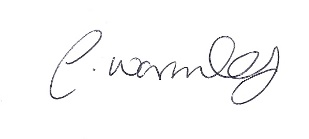 C. Warmley